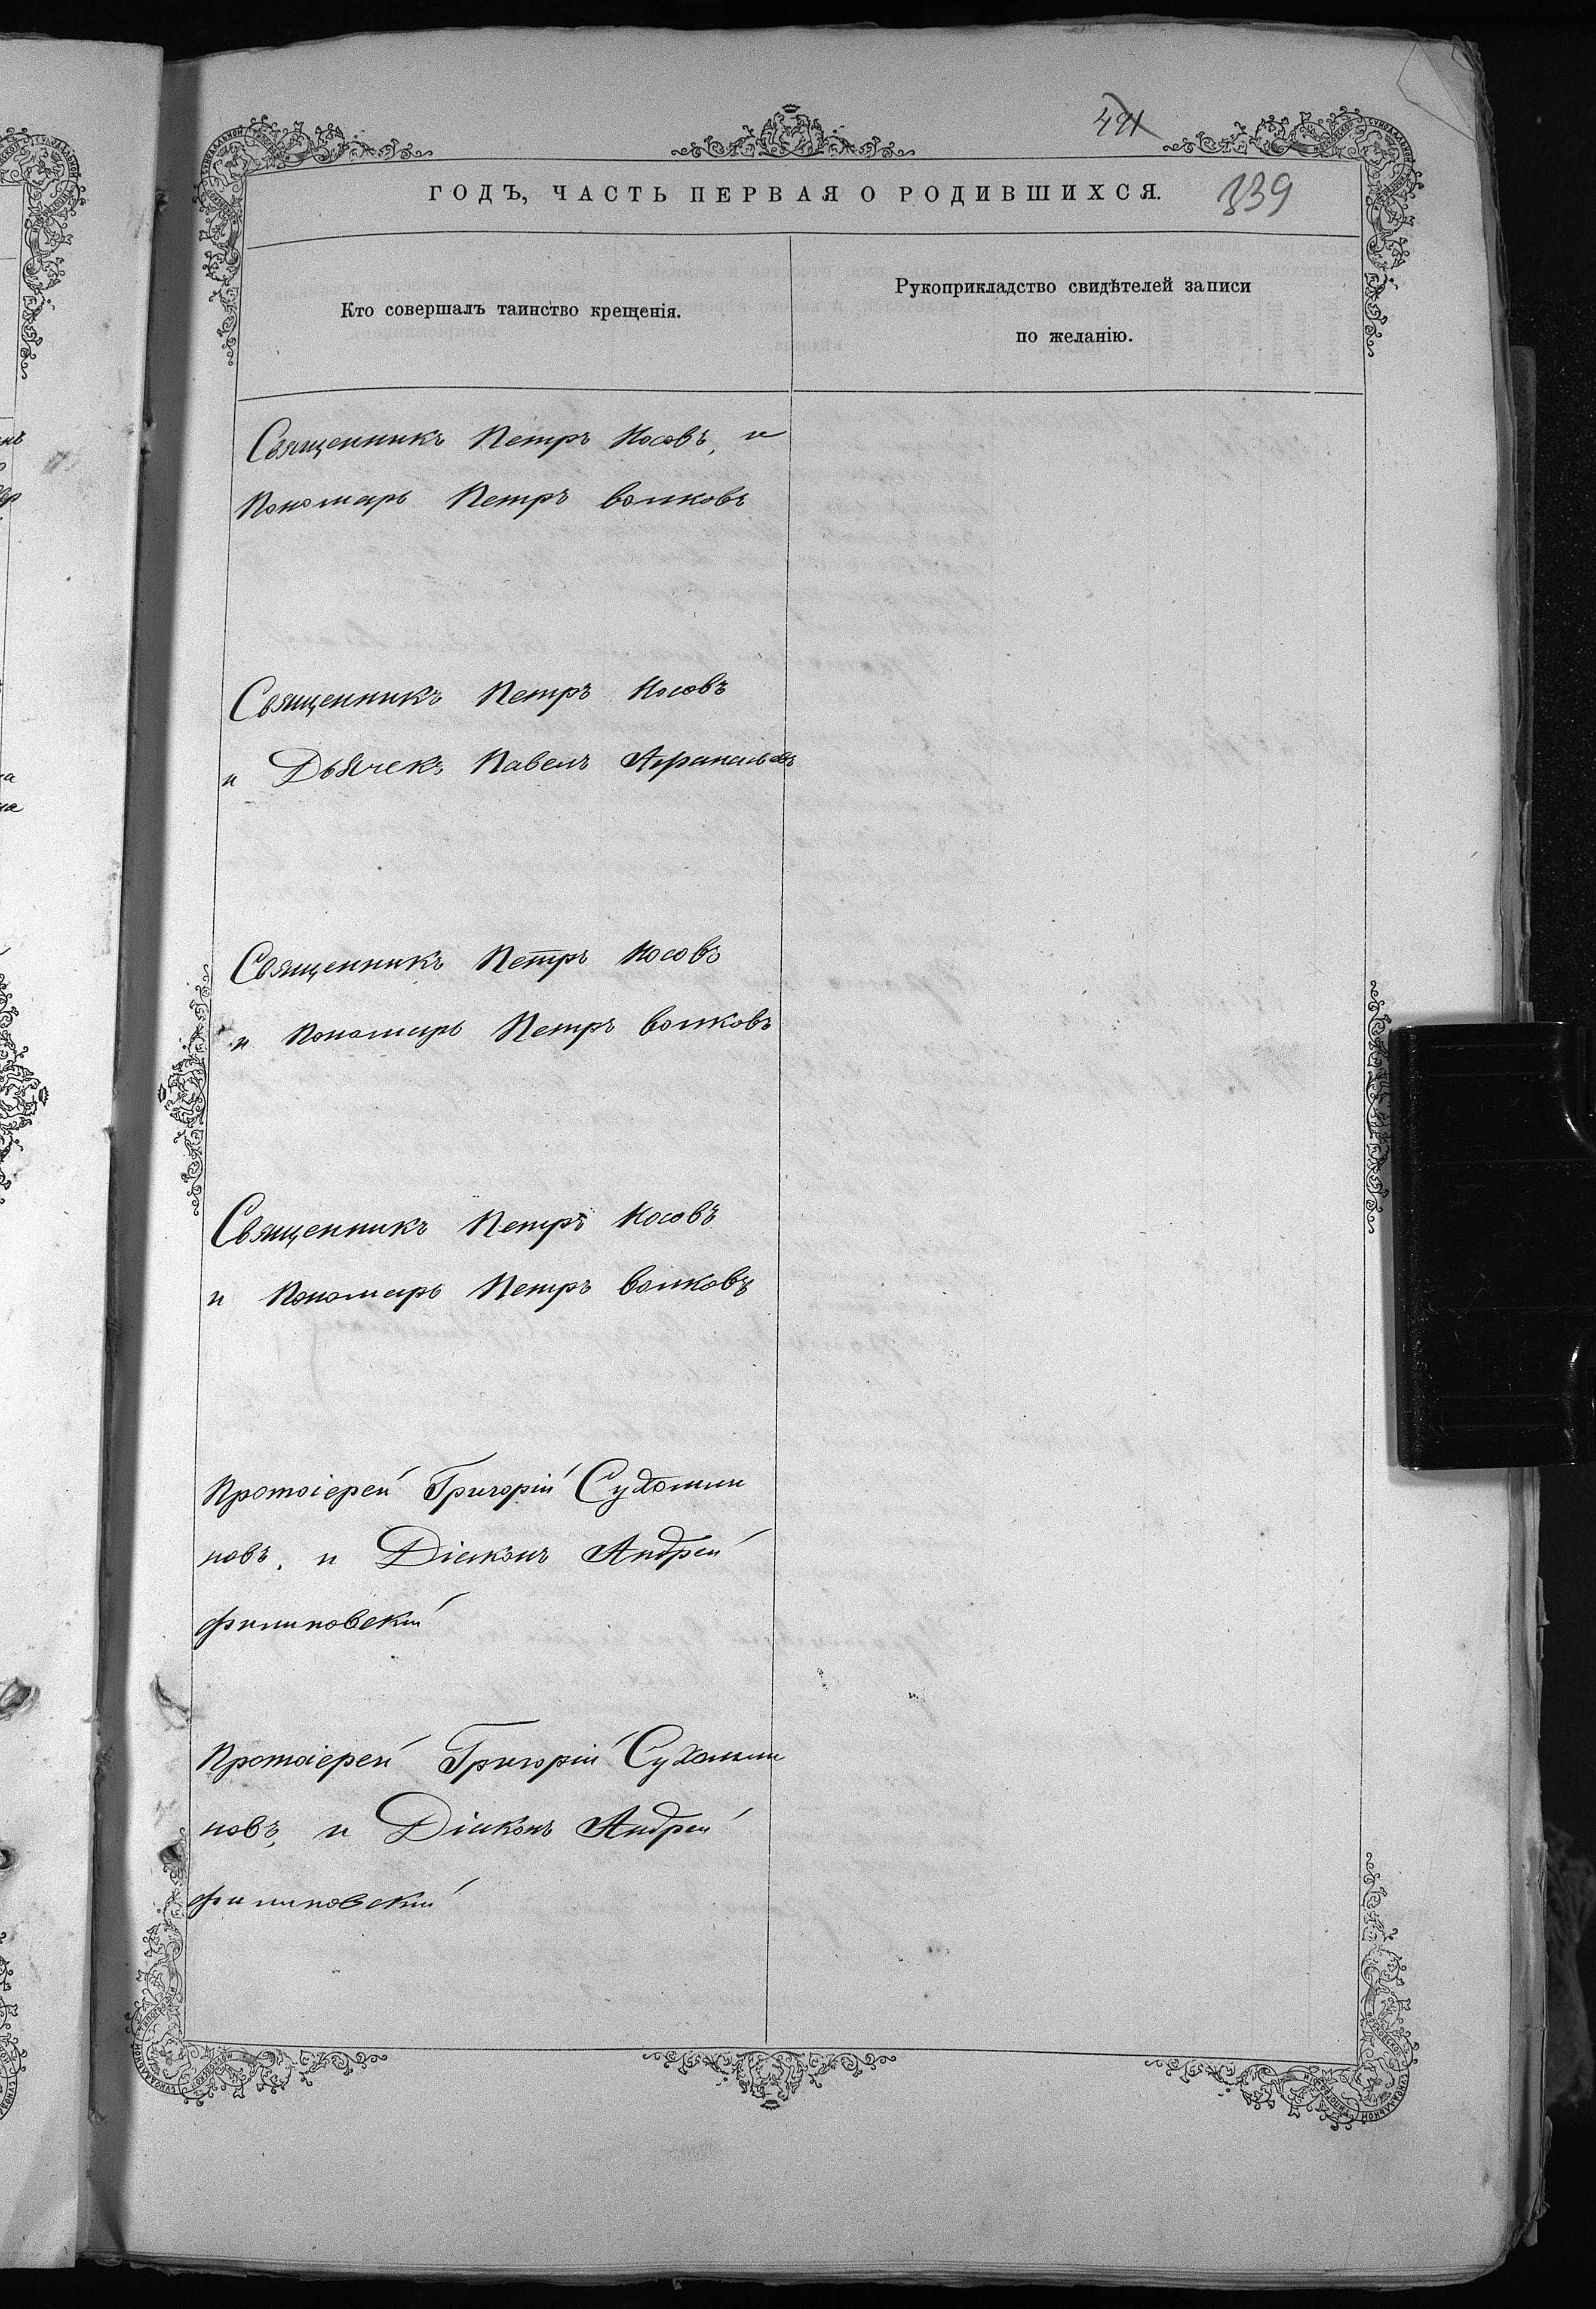 441
ГОДЪ, ЧАСТЬ ПЕРВАЯ О РОДИВШИХСЯ.
339
Кто совершалъ таинство крещенія.
Рукоприкладство свидѣтелей записи
по желанію.
Священникъ Петръ Носовъ, и
Пономарь Петръ Волковъ
Священникъ Петръ Носовъ
и Дьячекъ Павелъ
Священникъ Петръ Носовъ
и Пономарь Петръ Волковъ
Священникъ Петръ Носовъ
и Пономарь Петръ Волковъ
Протоіерей Григорій Сухомли
новъ, и Діаконъ Андрей
Филиповскій
Протоіерей Григорій Сухомли
новъ, и Діаконъ Андрей
Филиповскій